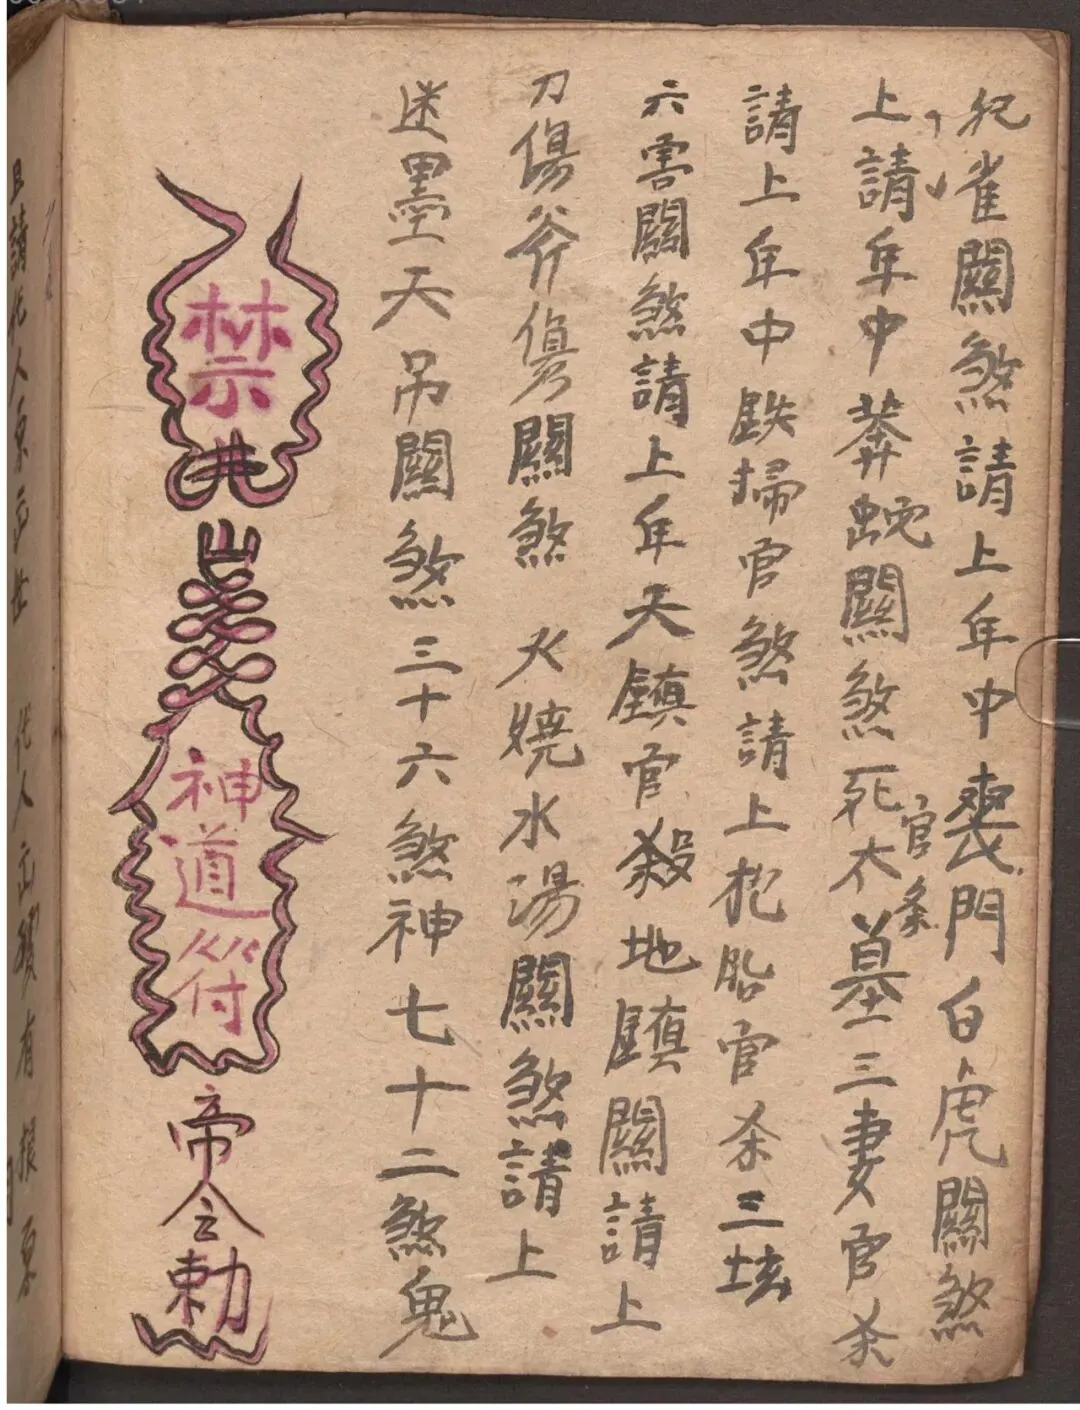 雀關煞請上年中喪門白虎關煞
上請年中莽蛇關煞死木墓三妻官杀
官条
請上年中鉄掃官煞請上抱胎官杀三垓
六害關煞請上年天鎮官殺地鎮關請上
刀傷斧傷關煞 火燒水湯關煞請上
迷墨天吊關煞三十六煞神七十二煞鬼
禁井
神道符
帝令勅
請代人
有根